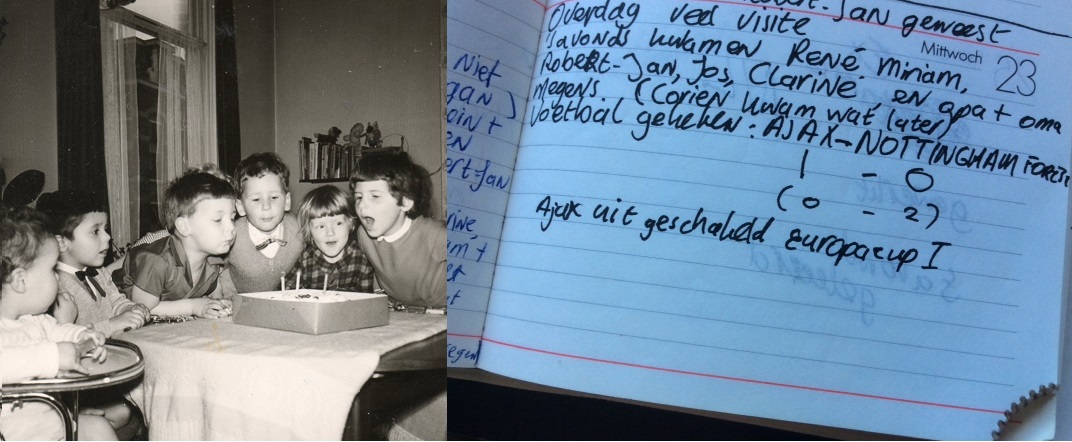 Jan geweest
Overdag veel visite
Mittwoch 23
's avonds kwamen René, Miriam,
Robert-Jan, Jos, Clariné en opa + oma
Megens (Corien kwam wat later)
Voetbal gekeken: AJAX-NOTTINGHAM FOREST
1 - 0
(0 - 2)
Ajax uit geschakeld Europacup I
Niet
gan)
ert-Jan